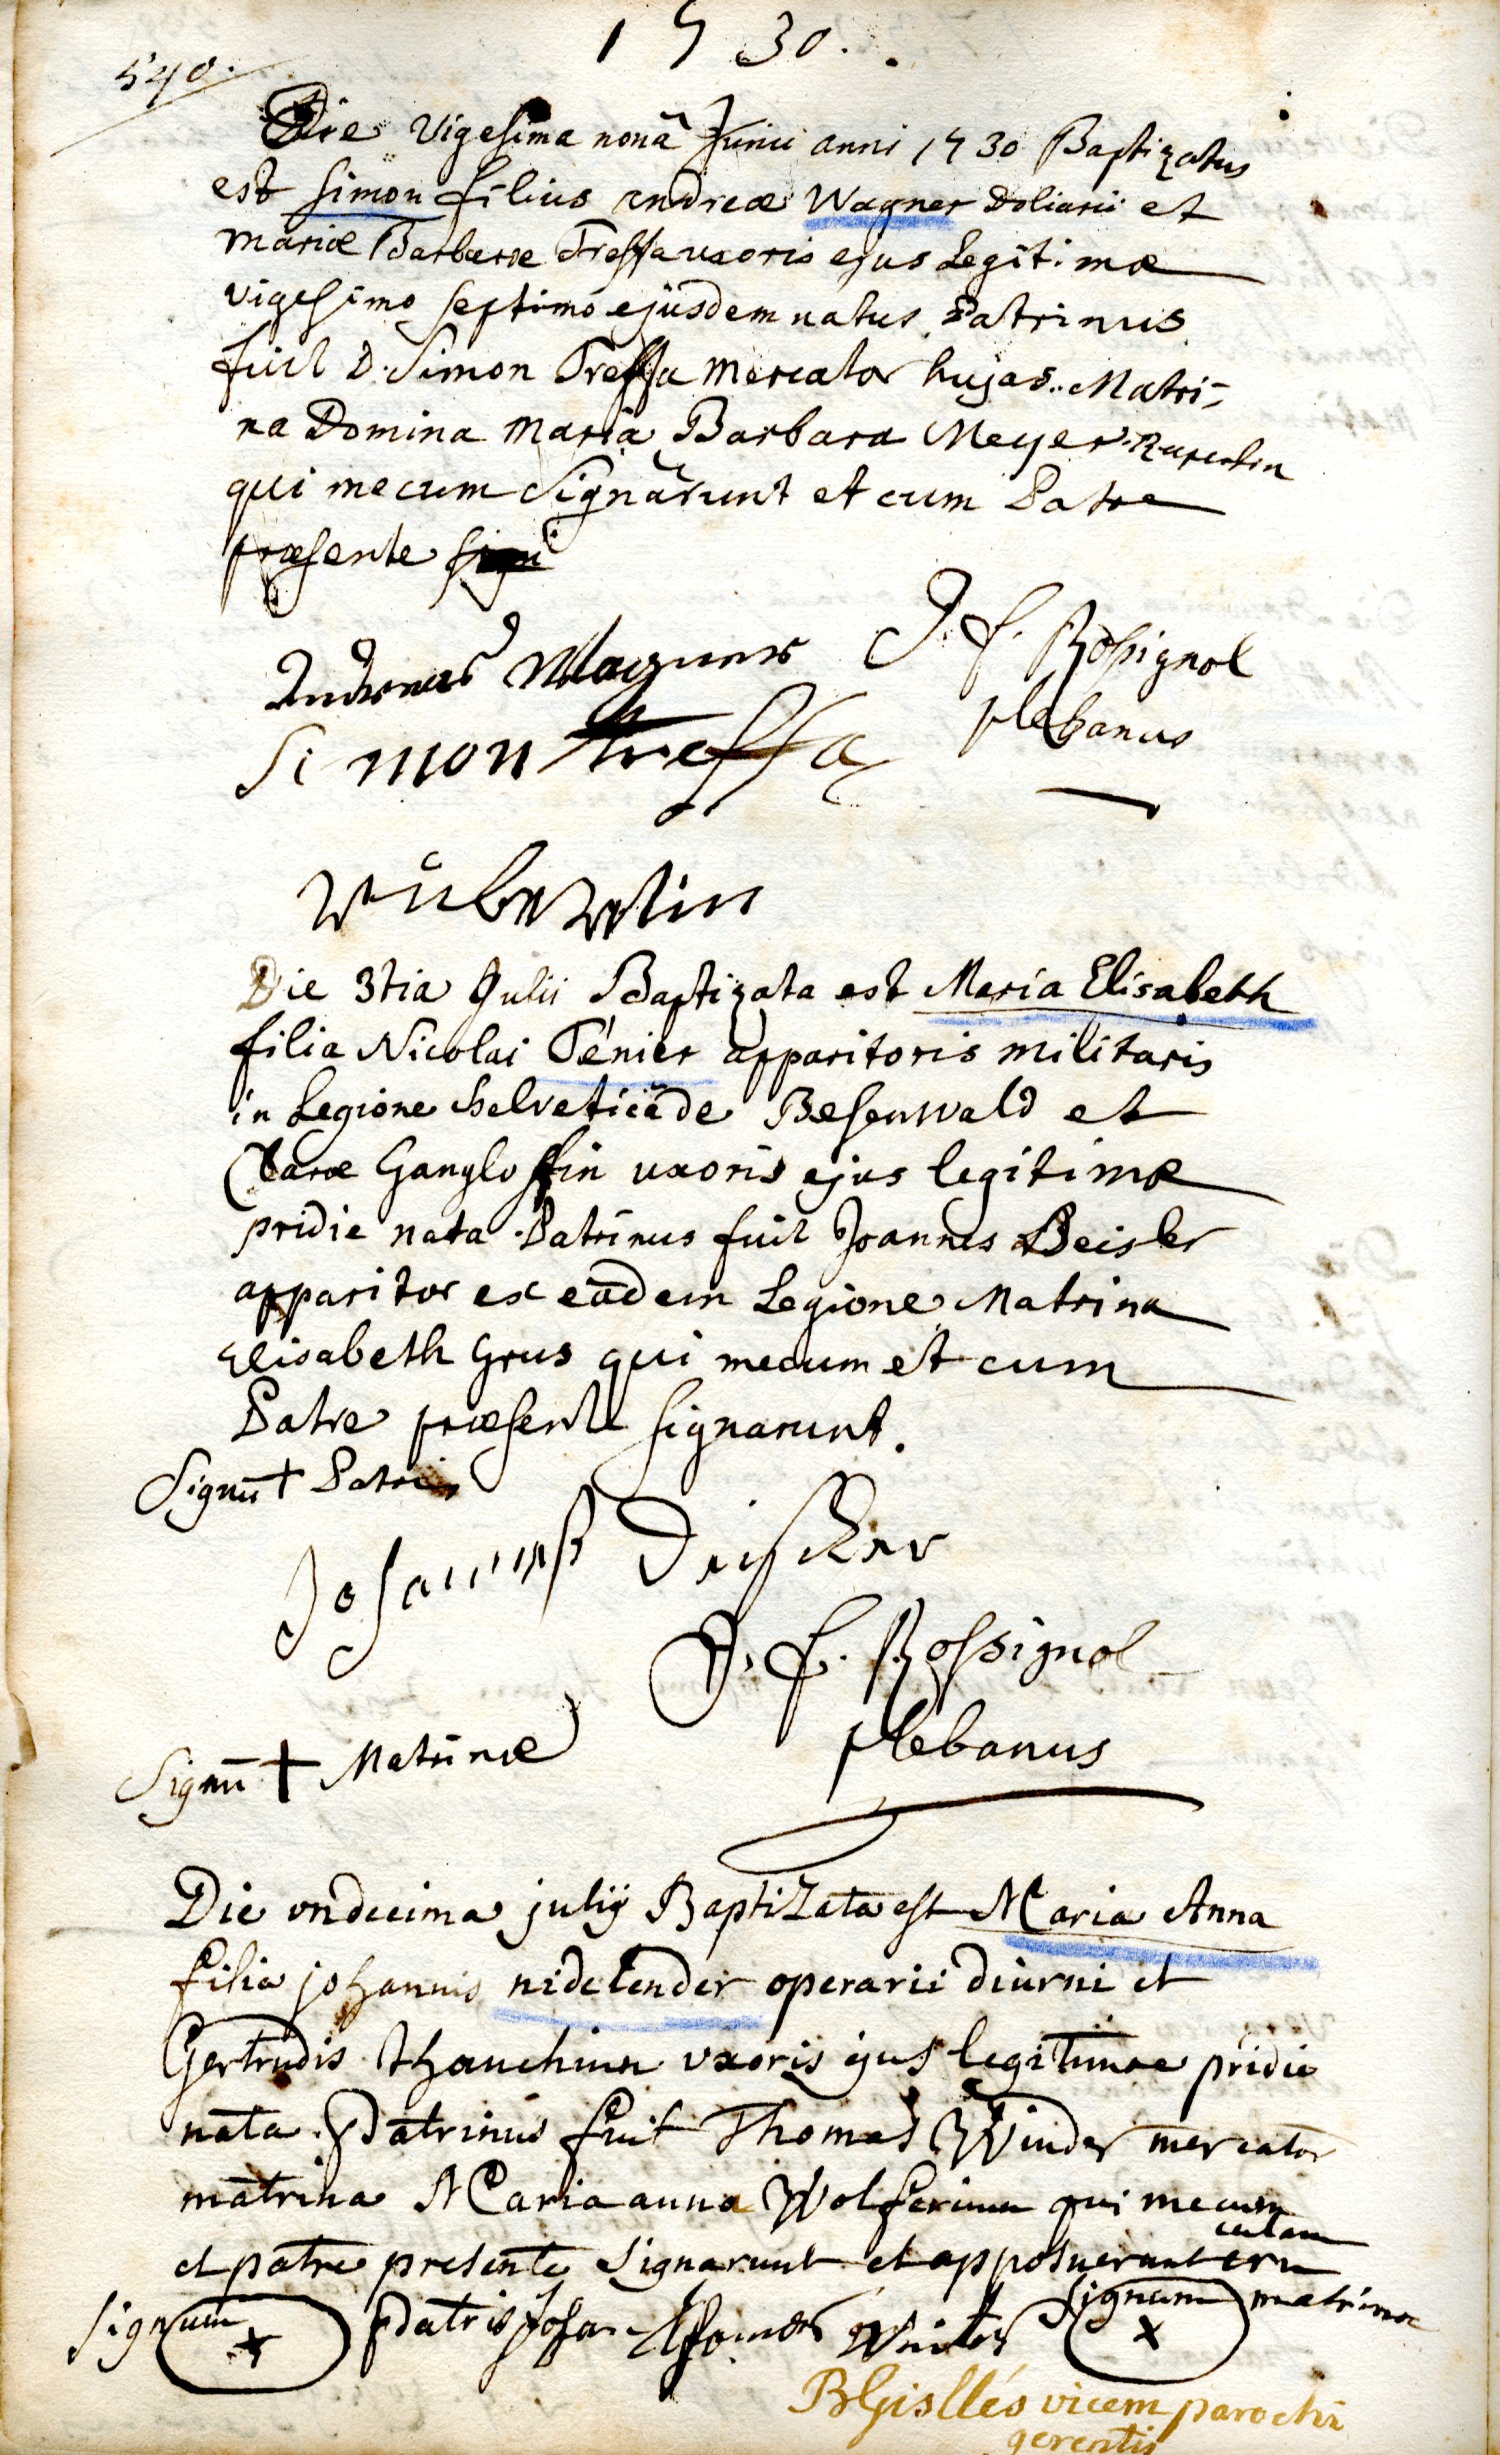 1730.
540.
Die Vigesima nonâ Junii anni 1730 Baptizatus
est Simon filius andreæ Wagner Doliarii et
mariæ Barberæ Treffa uxoris ejus Legitimæ
vigesimo septimo ejusdem natus Patrinus
fuit D. Simon Treffa Mercator hujas. Matri-
na Domina Maria Barbara Meyer
qui mecum Signârunt et cum Patre
præsente
Andreas Wagner J. f. Rossignol
plebanus
Simon treffa
Die 3tia Julii Baptizata est Maria Elisabeth
filia Nicolai Ténier apparitoris militaris
in Legione helveticâ de Besenwald et
Claræ Gangloffin uxoris ejus legitimæ
pridie nata. Patrinus fuit Joannes Beisler
apparitor ex eâdem Legione Matrina
Elisabeth Grus qui mecum et cum
Patre præsente signarunt.
Signū + Patris
Johannes
J. f. Rossignol
plebanus
Signū + Matrinæ
Die vndecima julij BaptiZata est Maria Anna
filia johannis nidelender operarii diurni et
Gertrudis thauchinn vxoris ejus legitimae pridie
nata. Patrinus fuit Thomas Winder mercator
matrina Maria anna Wolferinn qui mecum
et patre presente signarunt et apposuerunt cru
Signum x Patris Signum x matrinae
BGisllés vicem parochi
gerentis